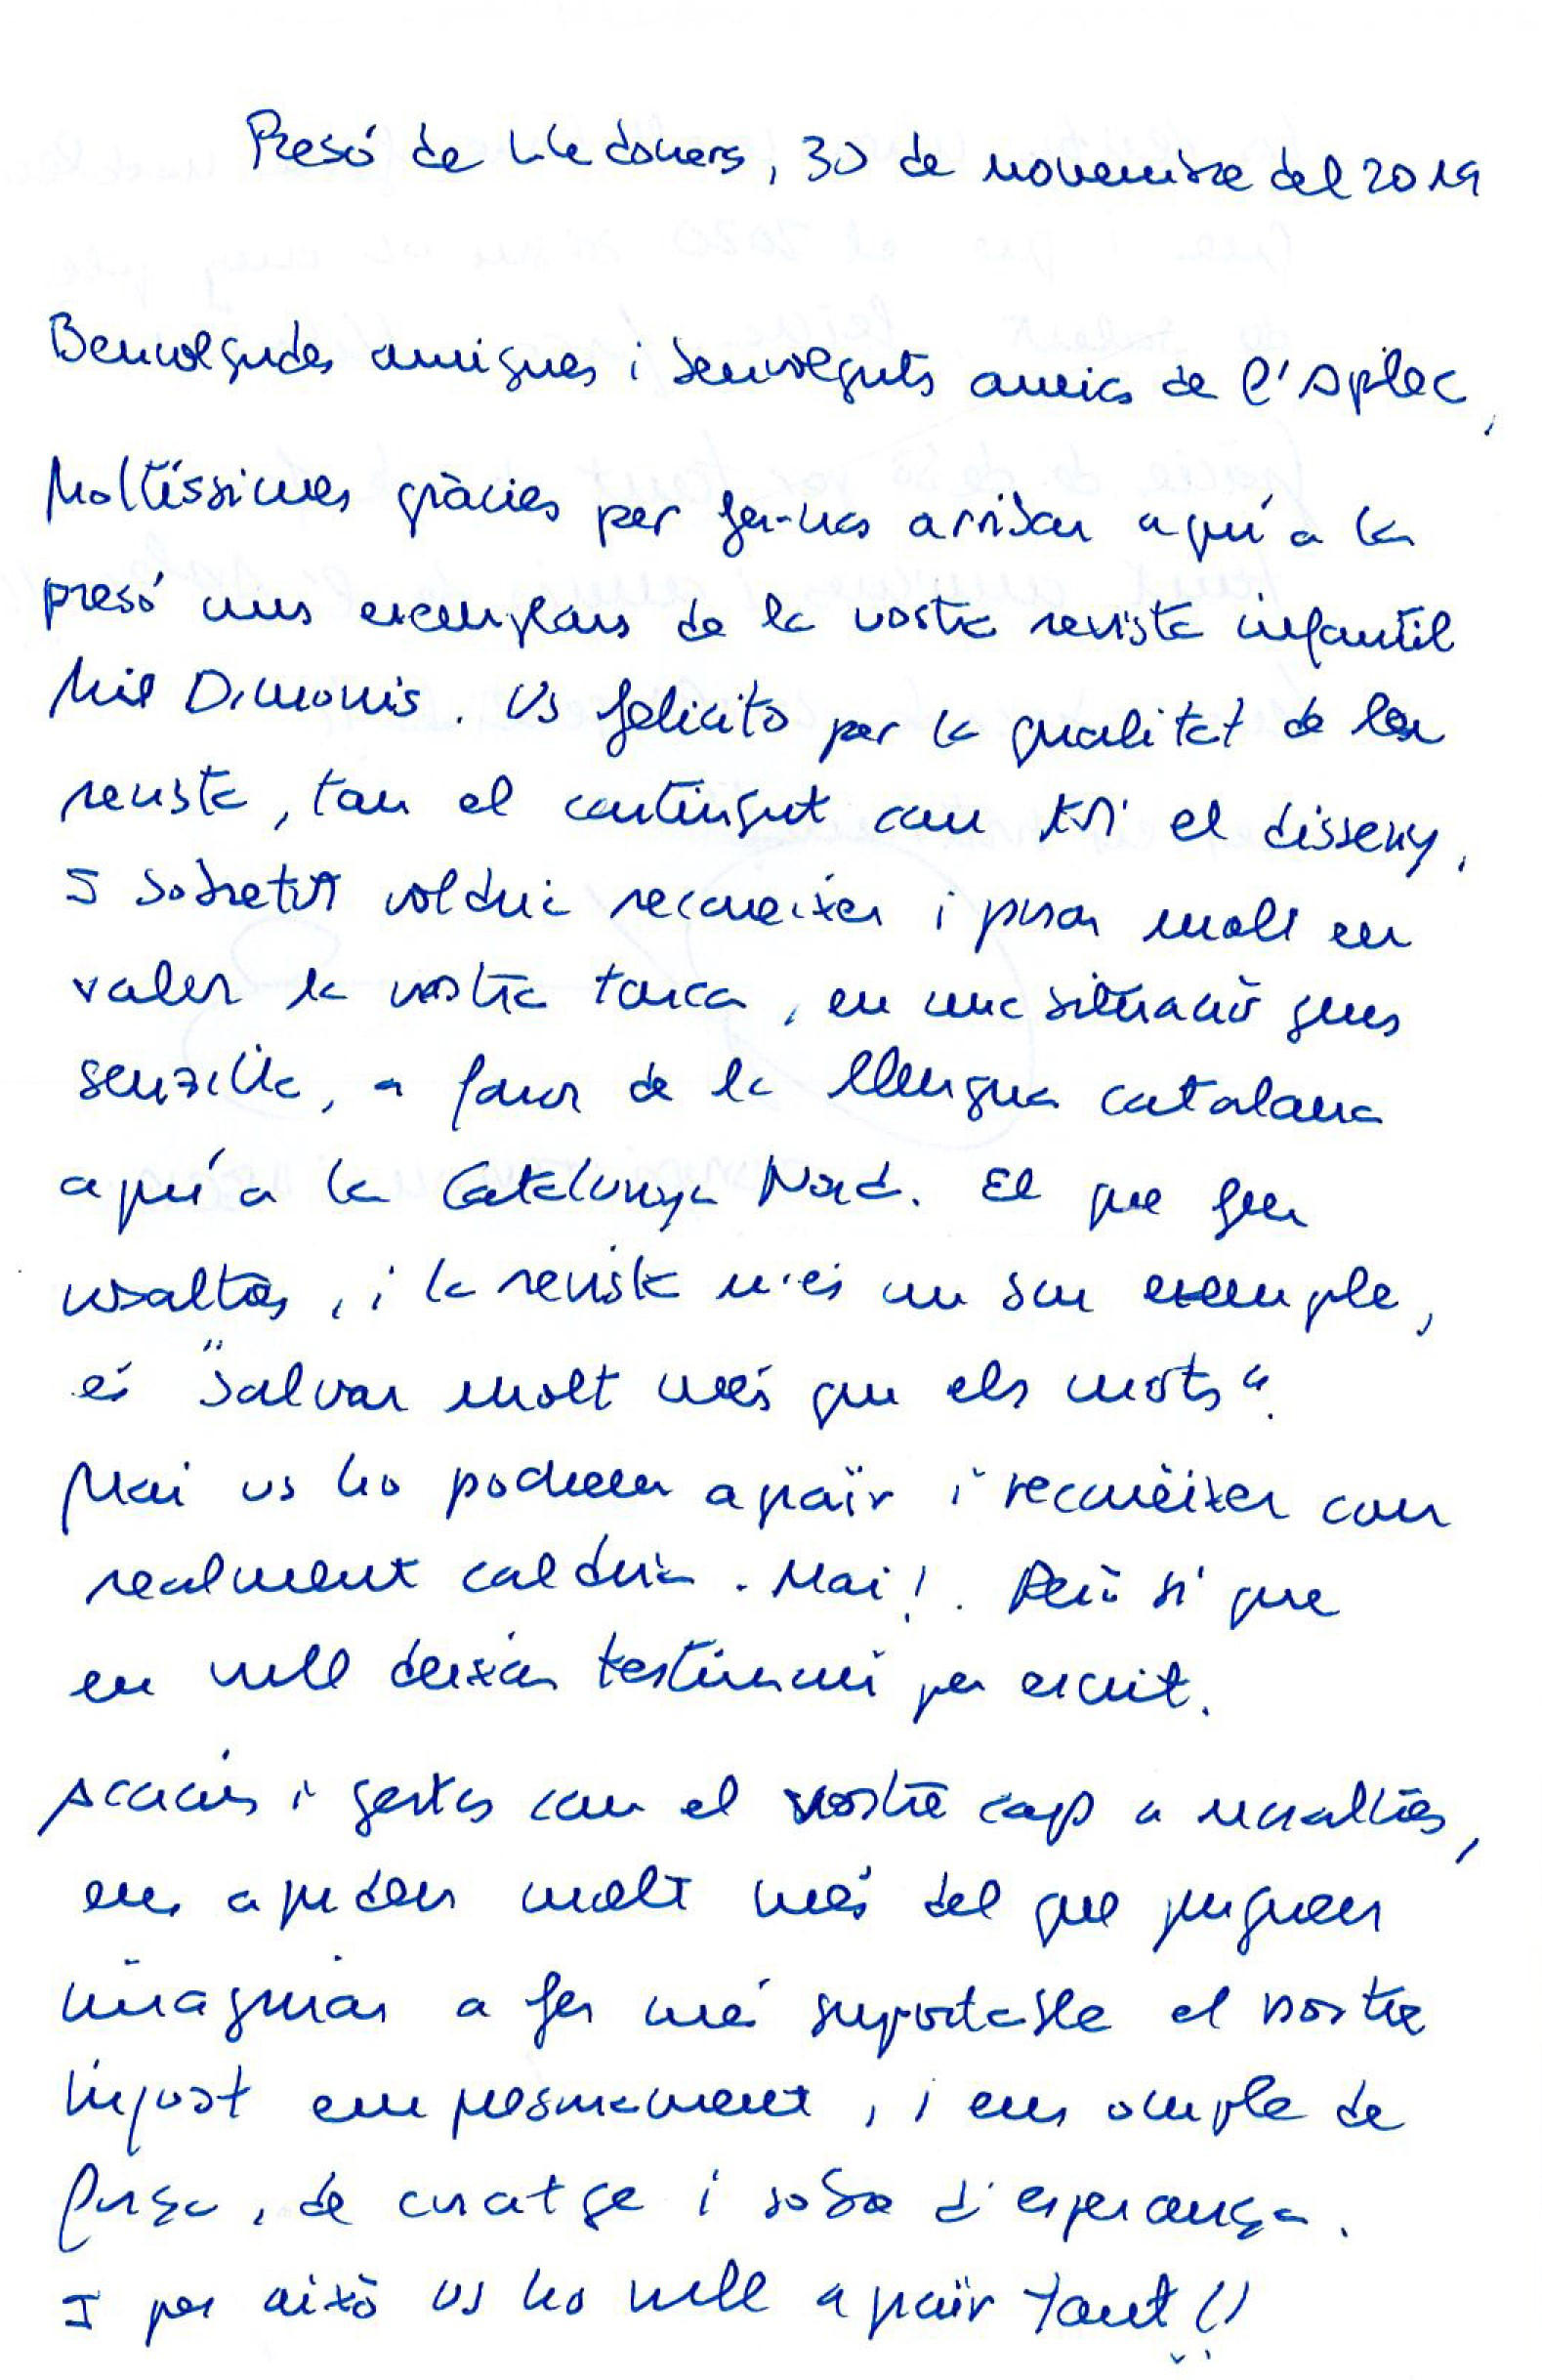 Presó de Lledoners, 30 de novembre del 2019
Benvolgudes amigues i benvolguts amics de l'Aplec,
Moltíssimes gràcies per fer-nos arribar aquí a la
presó uns exemplars de la vostra revista infantil
Mil Dimonis. Us felicito per la qualitat de la
revista, tan el contingut com tot el disseny.
I sobretot voldria reconeixer i posar molt en
valor la vostra tasca, en una situació gens
senzilla, a favor de la llengua catalana
aquí a la Catalunya Nord. El que feu
vosaltres, i la revista n'és un bon exemple,
és "salvar molt més que els mots".
Mai us ho podrem agrair i reconèixer com
realment caldria. Mai!. Però sí que
en vull deixar testimoni per escrit.
Accions i gestos com el vostre cap a nosaltres,
ens ajuden molt més del que pugueu
imaginar a fer més suportable el nostre
injust empresonament, i ens omple de
força, de coratge i sobre d'esperança.
I per això us ho vull agraïr tant!!